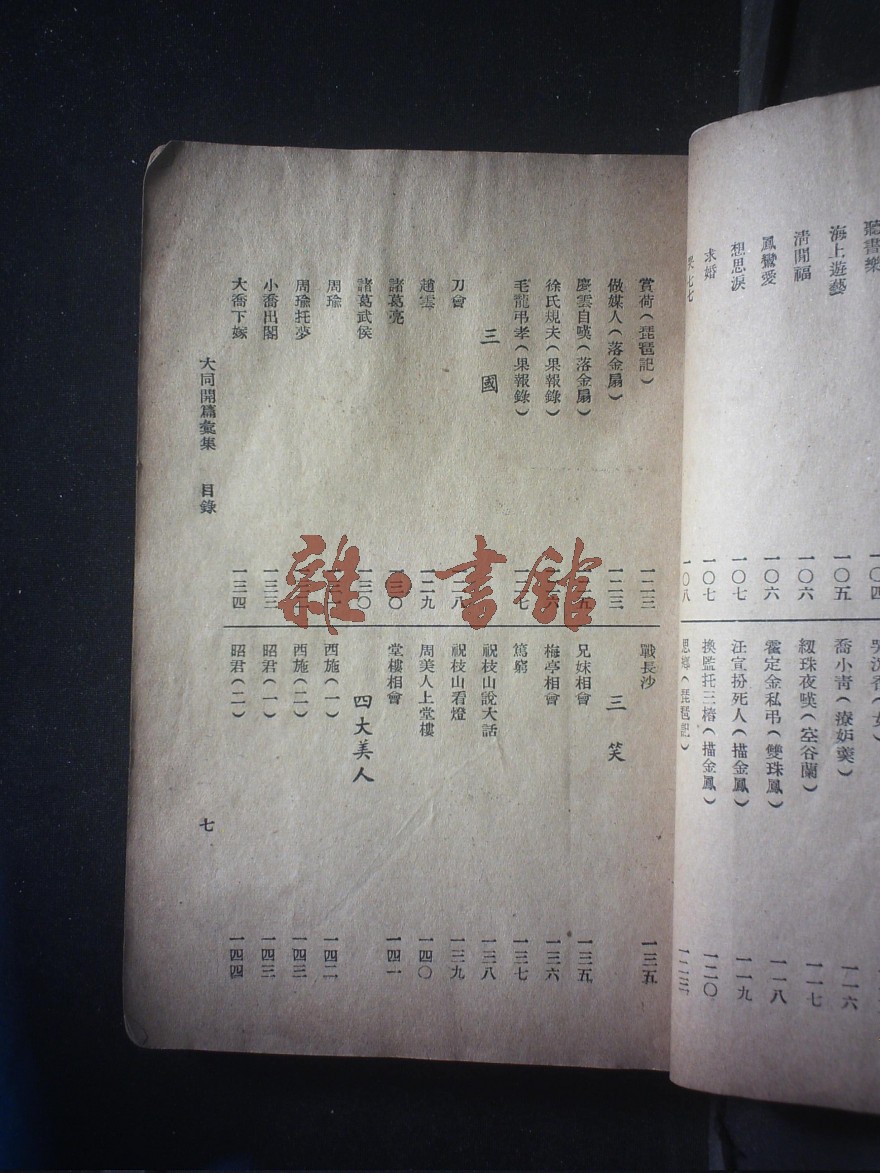 聽書樂 一〇四
海上遊藝 一〇五
清閒福 一〇六
鳳鸞愛 一〇六
想思淚 一〇七
求婚 一〇七
七七 一〇八
喬小青(療妒羹) 一一六
紉珠夜嘆(空谷蘭) 一一七
霍定金私弔(雙珠鳳) 一一八
汪宣扮死人(描金鳳) 一一九
換監托三樁(描金鳳) 一二〇
思鄉(琵琶記) 一二三
賞荷(琵琶記) 一二三
做媒人(落金扇) 一二三
慶雲自嘆(落金扇)
徐氏規夫(果報錄)
毛龍弔孝(果報錄) 一二七
三國
刀會 一二八
趙雲 一二九
諸葛亮 一三〇
諸葛武侯 一三〇
周瑜
周瑜托夢
小喬出閣 一三三
大喬下嫁 一三四
戰長沙 一三五
三笑
兄妹相會 一三五
梅亭相會 一三六
篤窮 一三七
祝枝山說大話 一三八
祝枝山看燈 一三九
周美人上堂樓 一四〇
堂樓相會 一四一
四大美人
西施(一) 一四二
西施(二) 一四三
昭君(一) 一四三
昭君(二) 一四四
大同開篇彙集 目錄
七
雜·書館